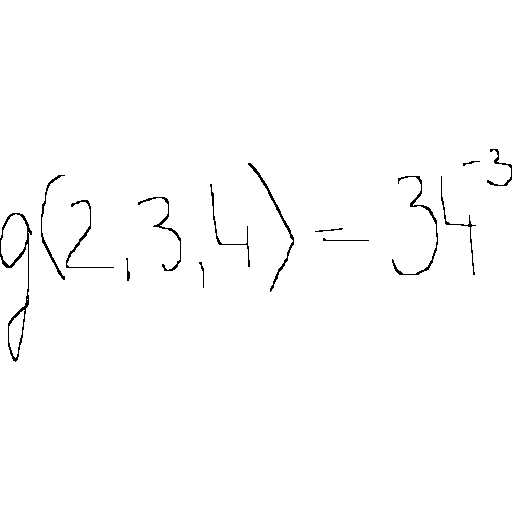 g(2,3,4)=34⁻³